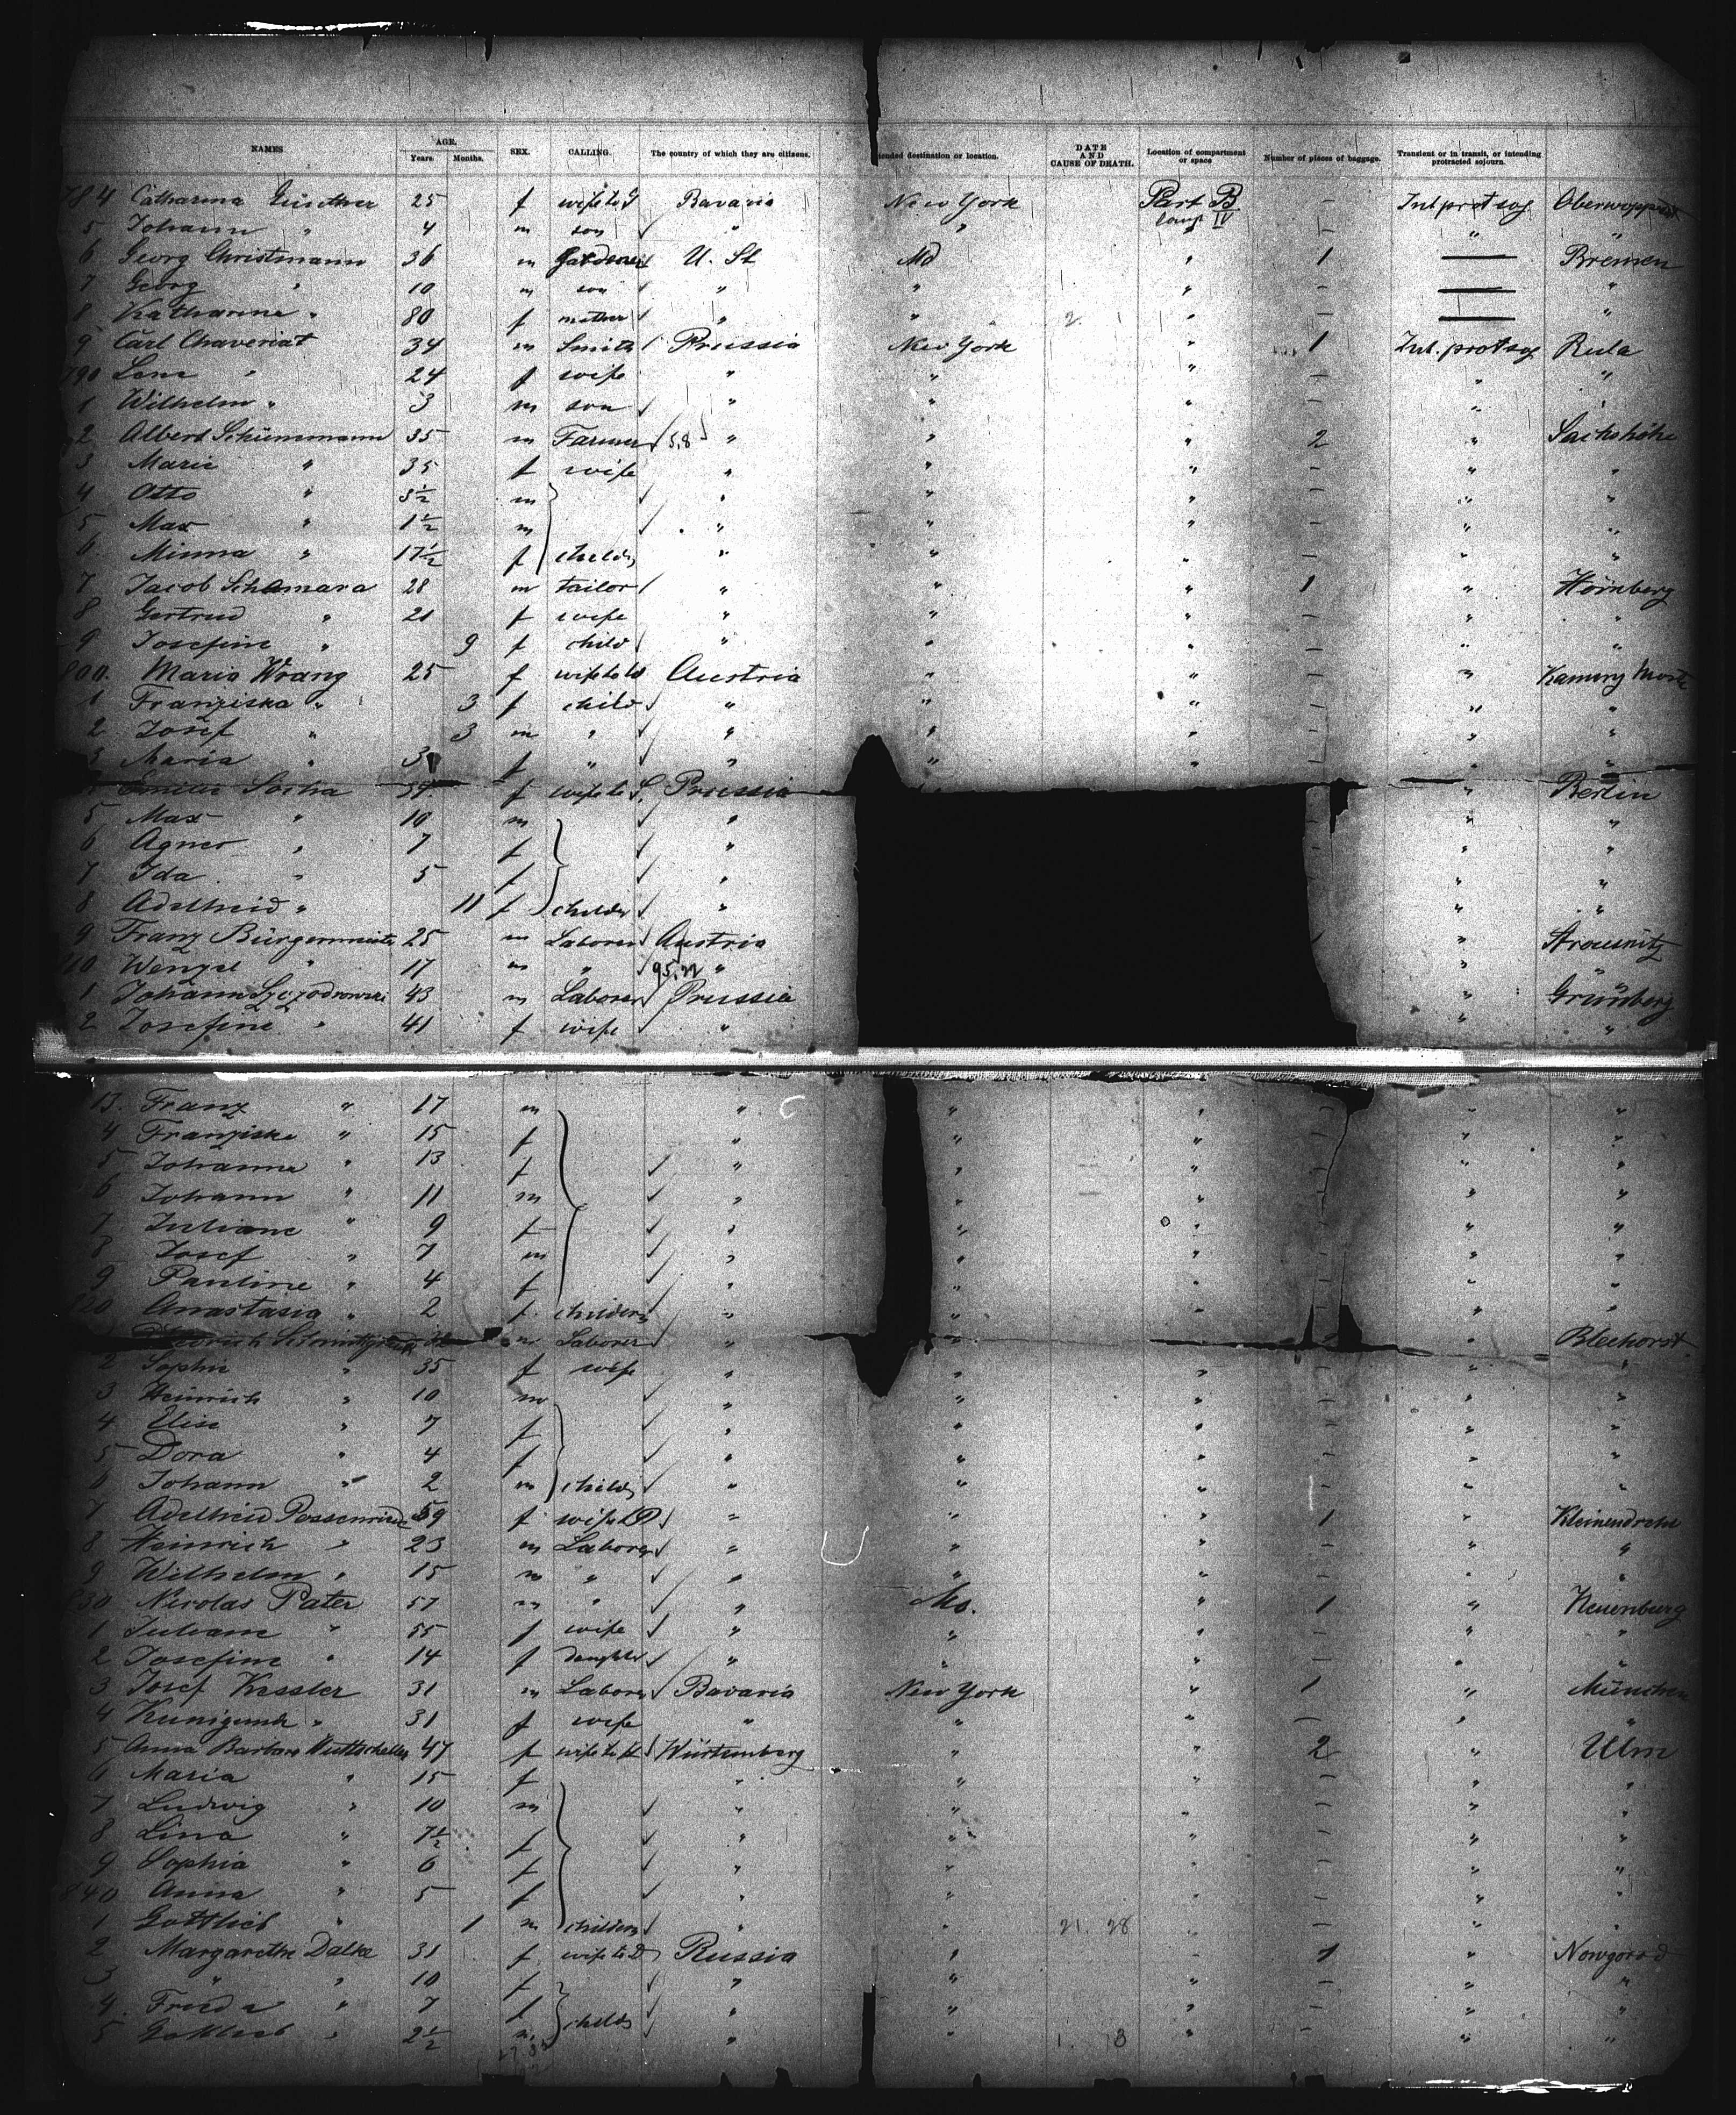 NAMES AGE. Years. Months. SEX. CALLING. The country of which they are citizens. ended destination or location. DATE AND CAUSE OF DEATH. Location of compartment or space Number of pieces of baggage. Transient or in transit, or intending protracted sojourn.
784 Catharina 25 f wife to G Bavaria New York Part B – Int prot soj
5 Johann " 4 m son " " Comp IV – " "
6 Georg Christmann 36 m Gardener U. St Md " 1 — Bremen
7 Georg " 10 m son " " " – — "
8 Katharine " 80 f mother " " 2 " – — "
9 Carl Chaveriat 34 m Smith Prussia New York " 1 Int. prot soj Rula
790 Lene " 24 f wife " " " – " "
1 Wilhelm " 3 m son " " " – " "
2 Albert Schünemann 35 m Farmer 5,8 " " " 2 "
3 Marie " 35 f wife " " " – " "
4 Otto " 3½ m " " " – " "
5 Max " 1½ m " " " – " "
6 Minna " 17½ f childr " " " – " "
7 Jacob Schamara 28 m tailor " " " 1 " Hörnberg
8 Gertrud " 21 f wife " " " – " "
9 Josefine " 9 f child " " " – " "
800. Maria Wrang 25 f wife to W Austria " " – " Kameny
1 Franziska " 3 f child " " " – " "
2 Josef " 3 m " " " " – " "
3 Maria " 3 f " " " " – " "
Emilie Socha f wife to S. Prussia " Berlin
5 Max " 10 m " " "
6 Agnes " 7 f " " "
7 Ida " 5 f " " "
8 Adelheid " 11 f childr " " "
9 Franz Bürgermeister 25 m Laborer Austria "
810 Wenzel " 17 m " 95,22 " " "
1 Johann 43 m Laborer Prussia " Grünberg
2 Josefine " 41 f wife " " "
13. Franz " 17 m " " " – " "
4 Franziska " 15 f " " " – " "
5 Johanna " 13 f " " " – " "
6 Johann " 11 m " " " – " "
7 Juliane " 9 f " " " – " "
8 Josef " 7 m " " " – " "
9 Pauline " 4 f " " " – " "
820 Anastasia " 2 f. children " " " – " "
m Laborer " " " " Blechorst
2 Sophie " 35 f wife " " " – " "
3 Heinrich " 10 m " " " – " "
4 Elise " 7 f " " " – " "
5 Dora " 4 f " " " – " "
6 Johann " 2 m childr " " " – " "
7 Adelheid 59 f wife to P " " " 1 "
8 Heinrich " 23 m Laborer " " " – " "
9 Wilhelm " 15 m " " " " – " "
830 Nicolas Pater 57 m " " Mo. " 1 " Neuenburg
1 Juliane " 55 f wife " " " – " "
2 Josefine " 14 f daughter " " " – " "
3 Josef Kessler 31 m Laborer Bavaria New York " 1 " München
4 Kunigunde " 31 f wife " " " – " "
5 Anna Barbara 47 f wife to H Würtemberg " " 2 " Ulm
6 Maria " 15 f " " " – " "
7 Ludwig " 10 m " " " – " "
8 Lina " 7½ f " " " – " "
9 Sophia " 6 f " " " – " "
840 Anna " 5 f " " " – " "
1 Gottlieb " 1 m children " " 21. 28 " – " "
2 Margarethe Dalke 31 f wife to D Russia " " 1 " Nowgorod
3 " " 10 f " " " – " "
4 Frieda " 7 f childr " " " – " "
5 Gottlieb " 2½ m. " " 1. 3 " – " "